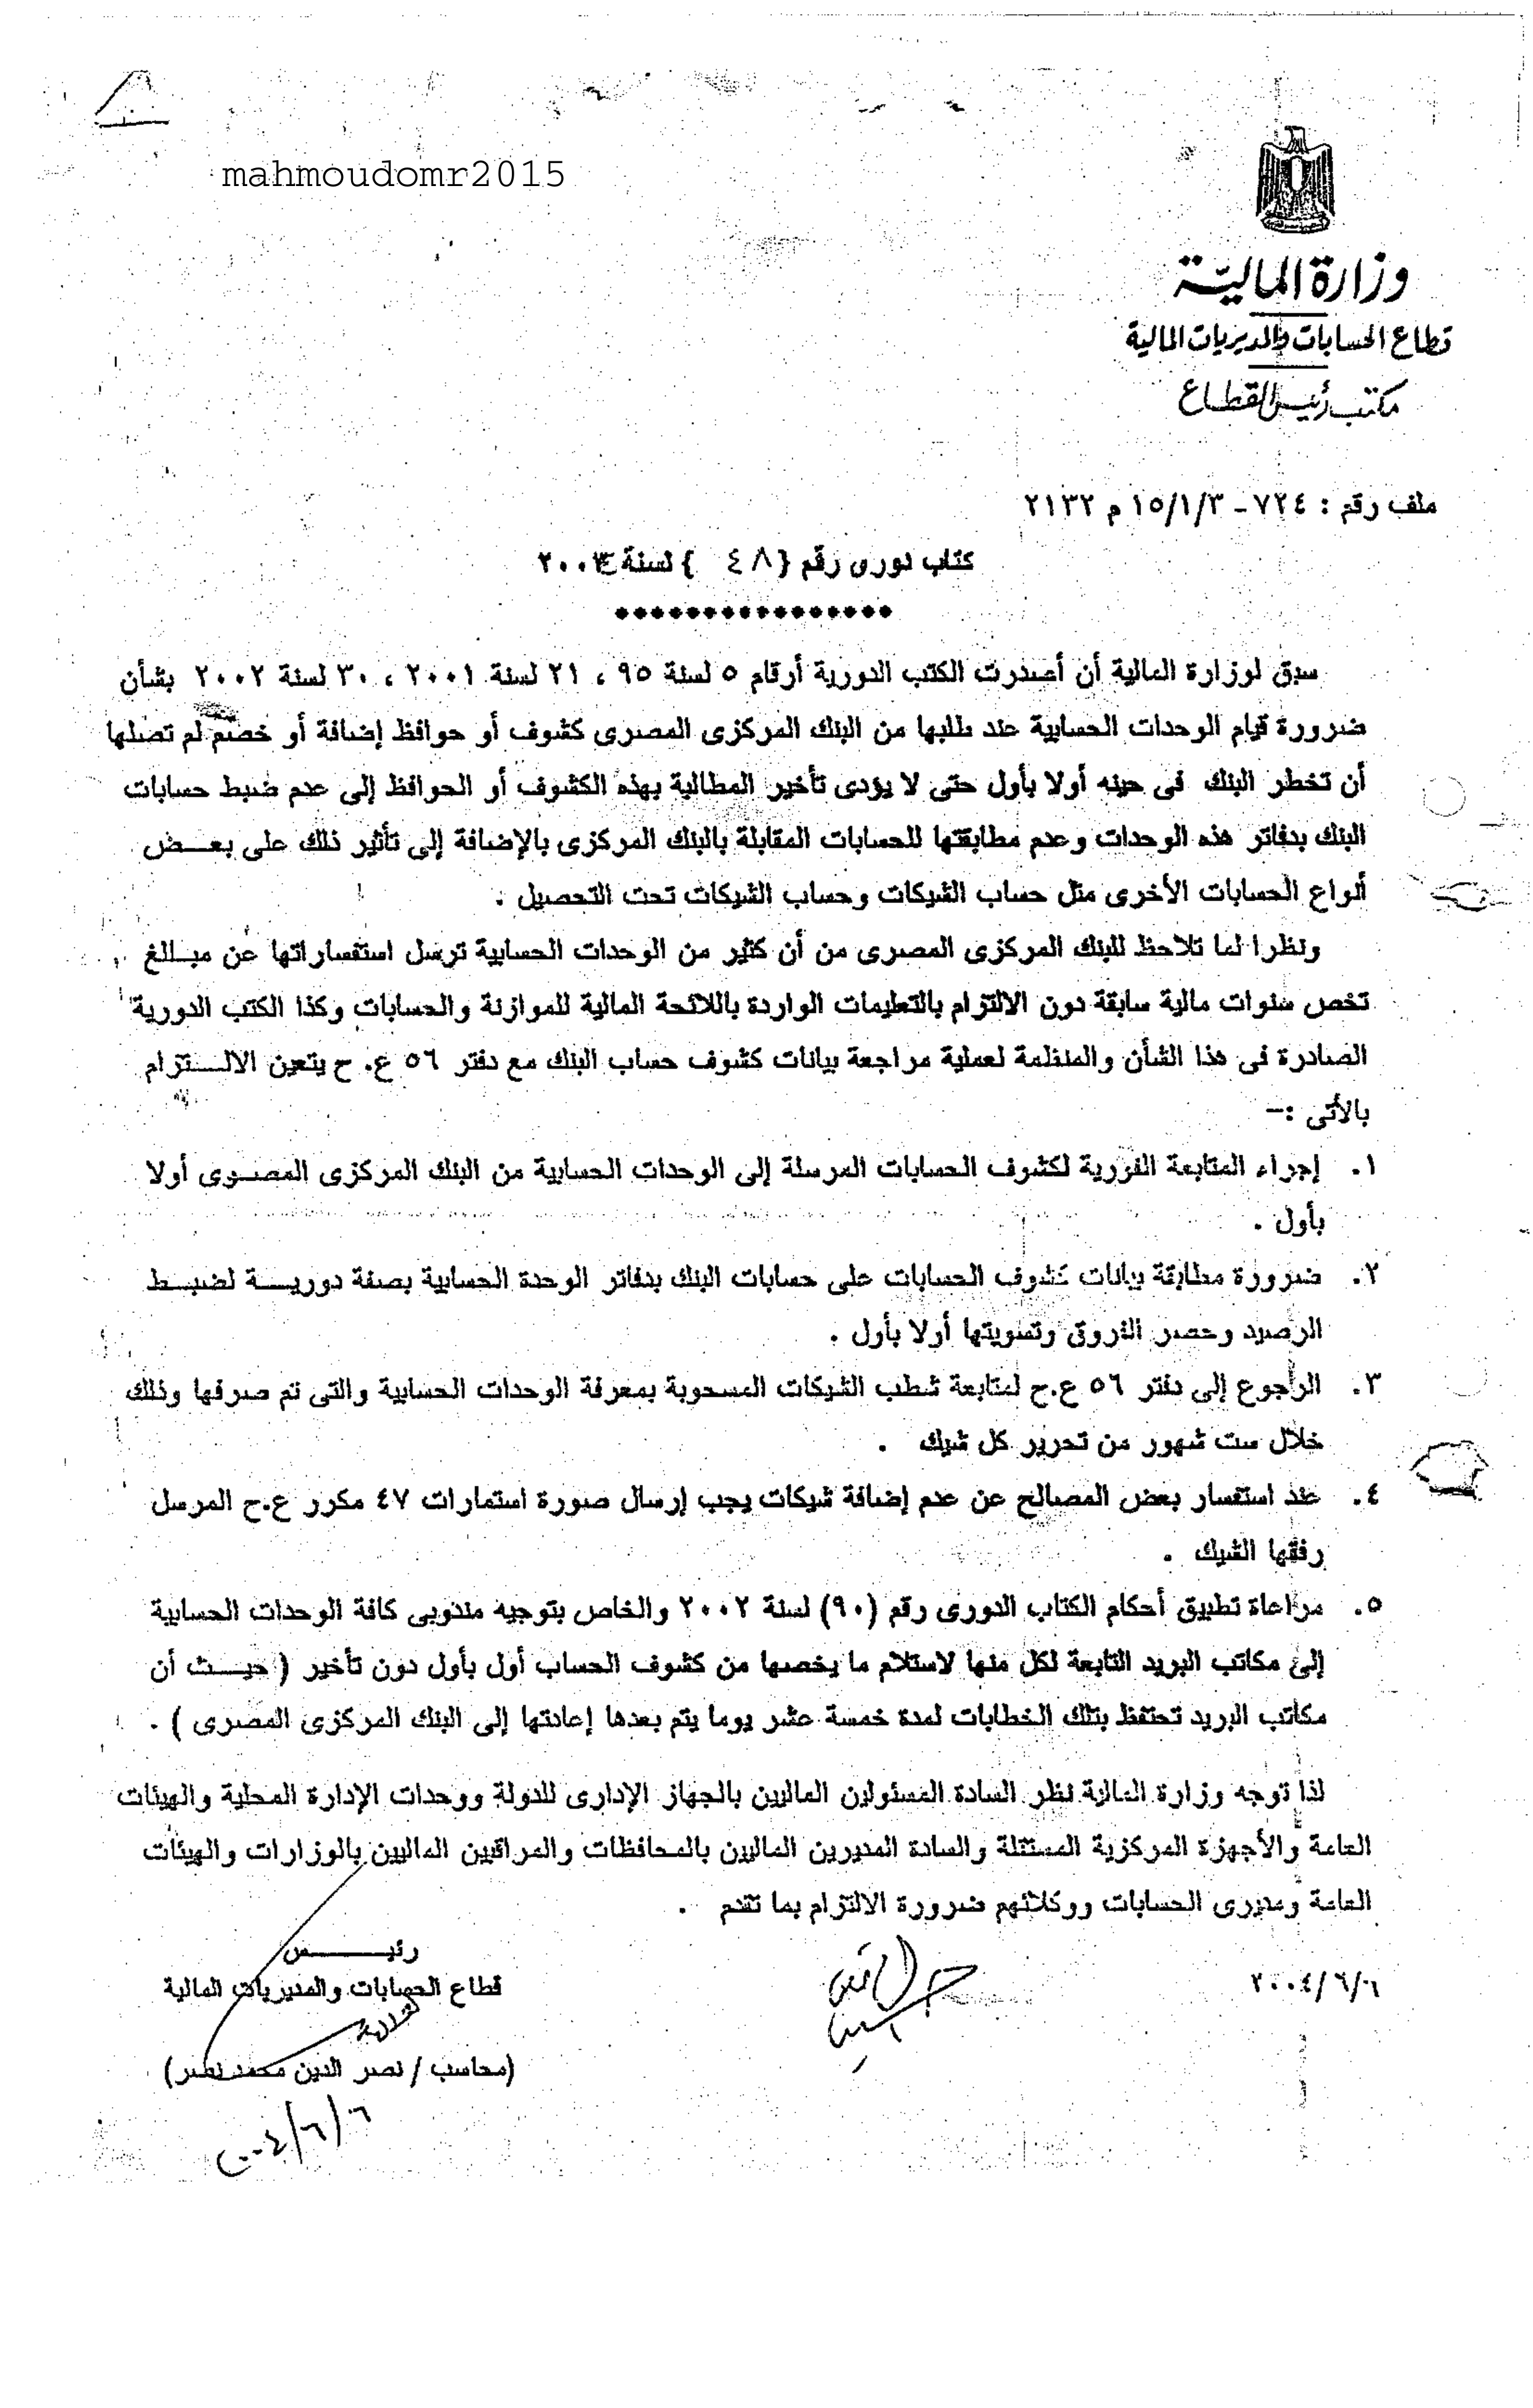 mahmoudomr2015
وزارة المالية
قطاع الحسابات والمديريات المالية
مكتب رئيس القطاع
ملف رقم : ٧٢٤ - ١٥/١/٣ م ٢١٣٢
كتاب دورى رقم { ٤٨ } لسنة
****************
سبق لوزارة المالية أن أصدرت الكتب الدورية أرقام ٥ لسنة ٩٥ ، ٢١ لسنة ٢٠٠١ ، ٣٠ لسنة ٢٠٠٢ بشأن
ضرورة قيام الوحدات الحسابية عند طلبها من البنك المركزى المصرى كشوف أو حوافظ إضافة أو خصم لم تصلها
أن تخطر البنك فى حينه أولا بأول حتى لا يؤدى تأخير المطالبة بهذه الكشوف أو الحوافظ إلى عدم ضبط حسابات
البنك بدفاتر هذه الوحدات وعدم مطابقتها للحسابات المقابلة بالبنك المركزى بالإضافة إلى تأثير ذلك على بعــض
أنواع الحسابات الأخرى مثل حساب الشيكات وحساب الشيكات تحت التحصيل .
ونظرا لما تلاحظ للبنك المركزى المصرى من أن كثير من الوحدات الحسابية ترسل استفساراتها عن مبــالغ
تخص سنوات مالية سابقة دون الالتزام بالتعليمات الواردة باللائحة المالية للموازنة والحسابات وكذا الكتب الدورية
الصادرة فى هذا الشأن والمنظمة لعملية مراجعة بيانات كشوف حساب البنك مع دفتر ٥٦ ع. ح يتعين الالــتزام
بالأتى :-
١. إجراء المتابعة الفورية لكشوف الحسابات المرسلة إلى الوحدات الحسابية من البنك المركزى المصــرى أولا
بأول .
٢. ضرورة مطابقة بيانات كشوف الحسابات على حسابات البنك بدفاتر الوحدة الحسابية بصفة دوريـــة لضبــط
الرصيد وحصر الفروق وتسويتها أولا بأول .
٣. الرجوع إلى دفتر ٥٦ ع.ح لمتابعة شطب الشيكات المسحوبة بمعرفة الوحدات الحسابية والتى تم صرفها وذلك
خلال ست شهور من تحرير كل شيك .
٤. عند استفسار بعض المصالح عن عدم إضافة شيكات يجب إرسال صورة استمارات ٤٧ مكرر ع.ح المرسل
رفقها الشيك .
٥. مراعاة تطبيق أحكام الكتاب الدورى رقم (٩٠) لسنة ٢٠٠٢ والخاص بتوجيه مندوبى كافة الوحدات الحسابية
إلى مكاتب البريد التابعة لكل منها لاستلام ما يخصها من كشوف الحساب أول بأول دون تأخير ( حيــث أن
مكاتب البريد تحتفظ بتلك الخطابات لمدة خمسة عشر يوما يتم بعدها إعادتها إلى البنك المركزى المصرى ) .
لذا توجه وزارة المالية نظر السادة المسئولين الماليين بالجهاز الإدارى للدولة ووحدات الإدارة المحلية والهيئات
العامة والأجهزة المركزية المستقلة والسادة المديرين الماليين بالمحافظات والمراقبين الماليين بالوزارات والهيئات
العامة ومديرى الحسابات ووكلائهم ضرورة الالتزام بما تقدم .
رئيـــــس
قطاع الحسابات والمديريات المالية
٢٠٠٤/٦/٦
(محاسب / نصر الدين محمد نصر)
٢٠٠٤/٦/٦